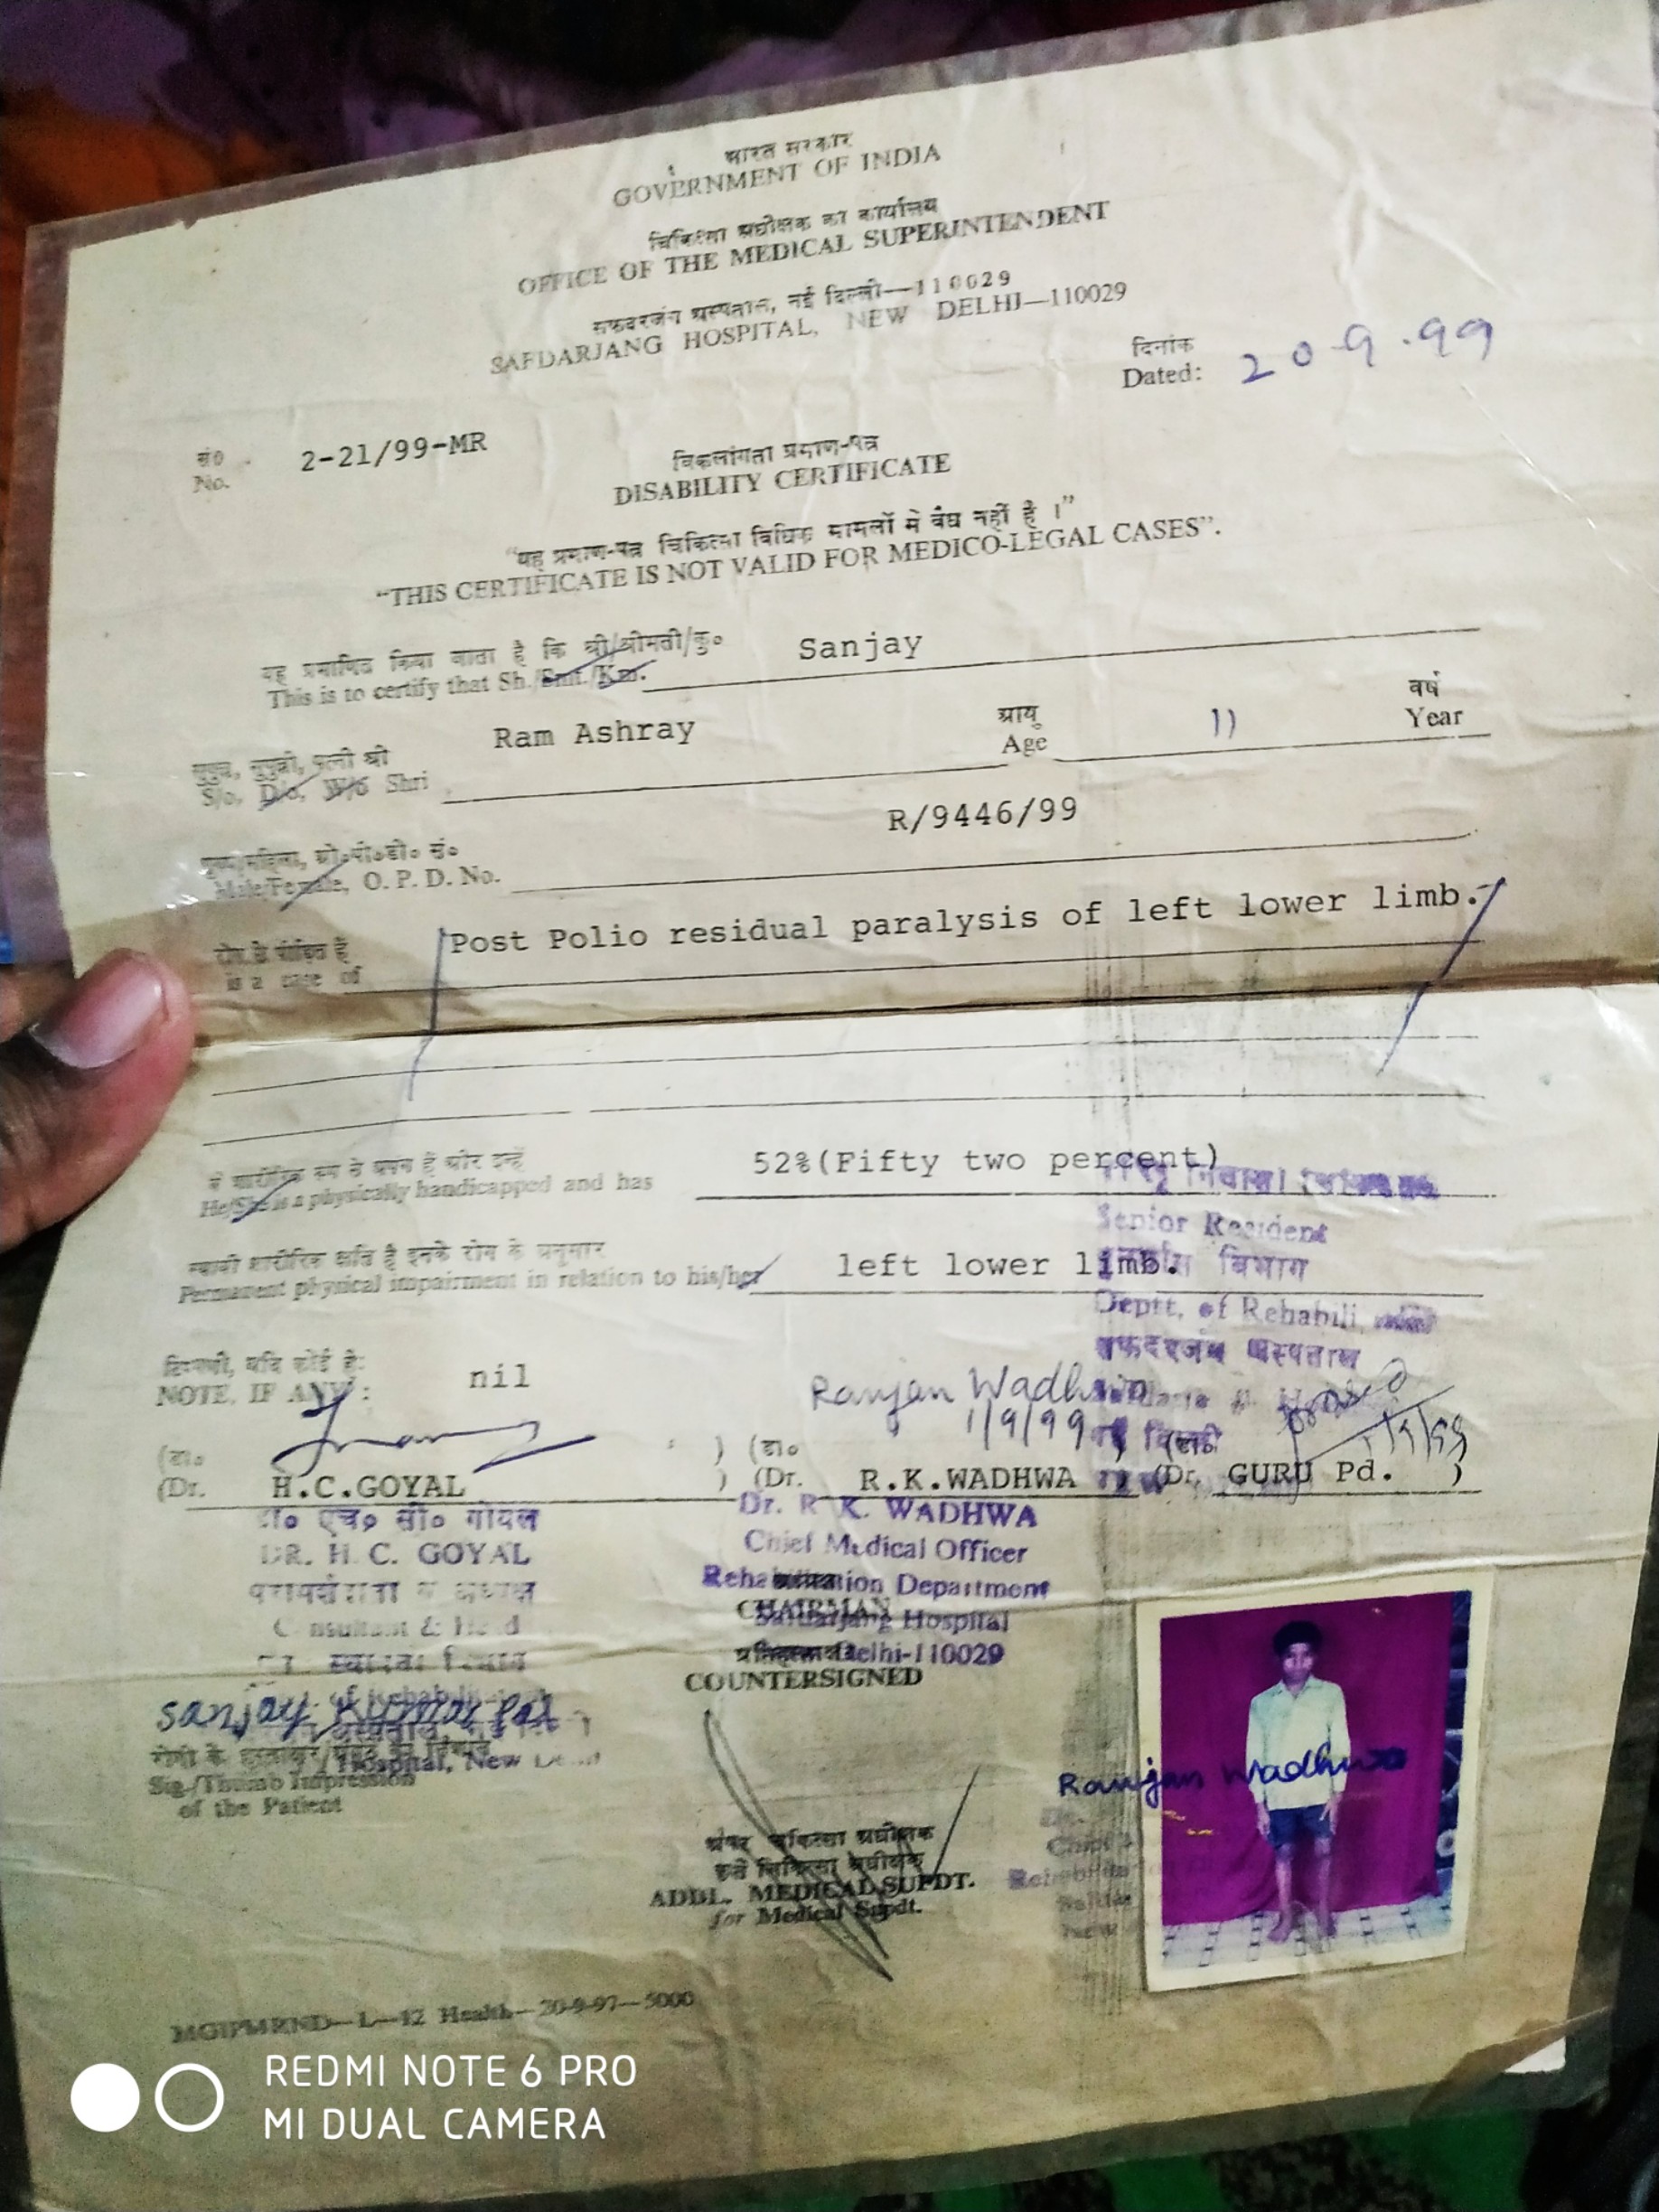 भारत सरकार
GOVERNMENT OF INDIA
चिकित्सा अधीक्षक का कार्यालय
OFFICE OF THE MEDICAL SUPERINTENDENT
सफदरजंग अस्पताल, नई दिल्ली—110029
SAFDARJANG HOSPITAL, NEW DELHI—110029
दिनांक
Dated: 20-9.99
सं०
No. 2-21/99-MR
विकलांगता प्रमाण-पत्र
DISABILITY CERTIFICATE
“यह प्रमाण-पत्र चिकित्सा विधिक मामलों में वैध नहीं है ।”
“THIS CERTIFICATE IS NOT VALID FOR MEDICO-LEGAL CASES”.
यह प्रमाणित किया जाता है कि श्री/श्रीमती/कु०
This is to certify that Sh./Smt./Km. Sanjay
सुपुत्र, सुपुत्री, पत्नी श्री आयु वर्ष
S/o, D/o, W/o Shri Ram Ashray Age 11 Year
पुरुष/महिला, ओ०पी०डी० सं०
Male/Female, O. P. D. No. R/9446/99
रोग से पीड़ित हैं
is a case of Post Polio residual paralysis of left lower limb.
He/She is a physically handicapped and has 52%(Fifty two percent)
स्थायी शारीरिक क्षति है इनके रोग के अनुसार
Permanent physical impairment in relation to his/her left lower limb.
Senior Resident
विभाग
Deptt. of Rehabili
सफदरजंग अस्पताल
टिप्पणी, यदि कोई है:
NOTE, IF ANY: nil
Ranjan Wadhwa
1/9/99
(डा० ) (डा० ) (डा०
(Dr. H.C.GOYAL ) (Dr. R.K.WADHWA ) (Dr. GURU Pd. )
डा० एच० सी० गोयल
DR. H. C. GOYAL
Consultant & Head
Hospital, New Delhi
Dr. R K. WADHWA
Chief Medical Officer
Rehabilitation Department
CHAIRMAN
Safdarjang Hospital
Delhi-110029
COUNTERSIGNED
sanjay Kumar
Sig./Thumb Impression
of the Patient
Ranjan Wadhwa
अपर चिकित्सा अधीक्षक
कृते चिकित्सा अधीक्षक
ADDL. MEDICAL SUPDT.
for Medical Supdt.
MGIPMRND—L—12 Health—20-9-97—5000
REDMI NOTE 6 PRO
MI DUAL CAMERA